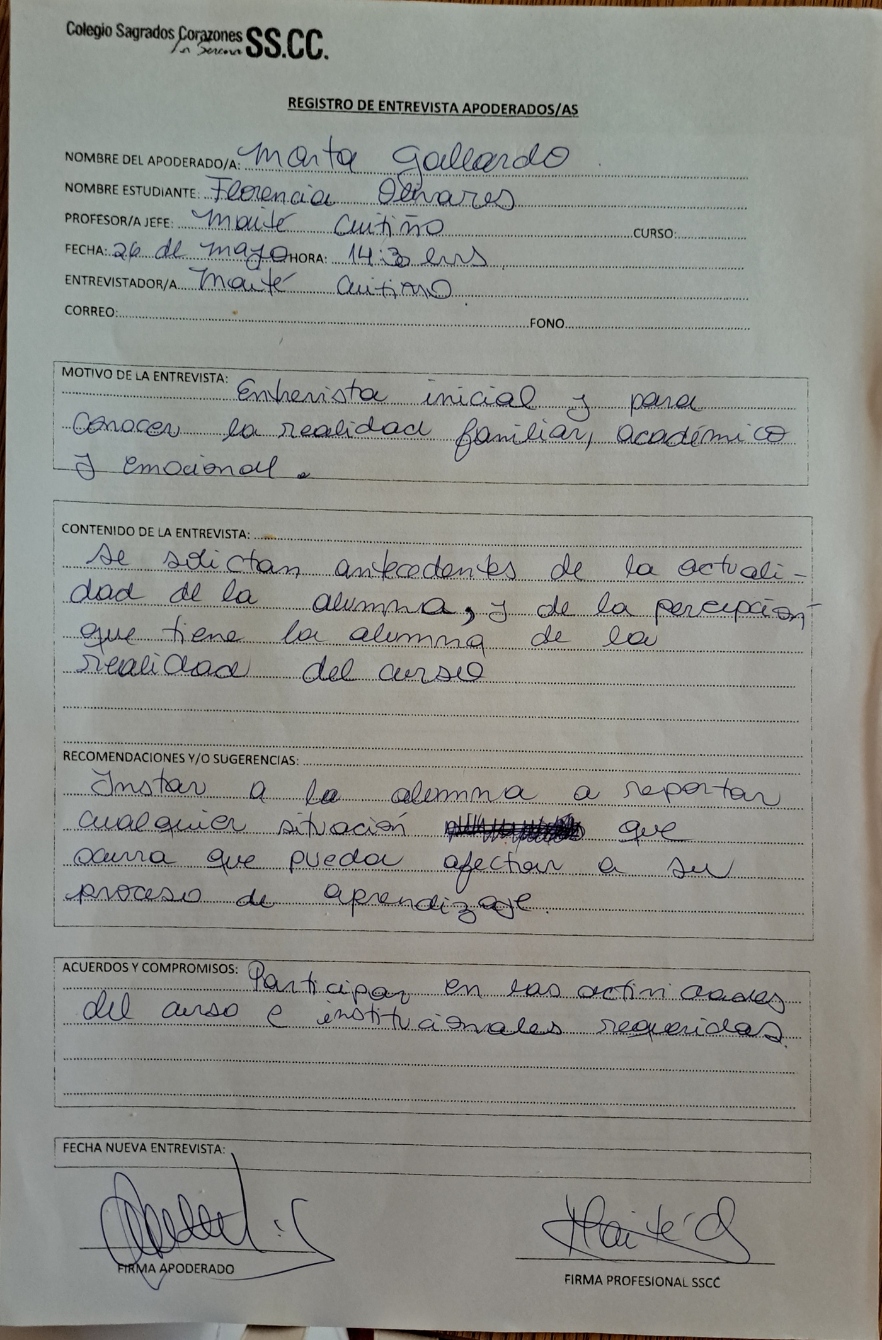 Colegio Sagrados Corazones
La Serena SS.CC.
REGISTRO DE ENTREVISTA APODERADOS/AS
NOMBRE DEL APODERADO/A: Marta Gallardo
NOMBRE ESTUDIANTE: Florencia Olivares
PROFESOR/A JEFE: Maité Cutiño CURSO:
FECHA: 26 de mayo HORA: 14:30 hrs
ENTREVISTADOR/A Maité Cutiño
CORREO: FONO
MOTIVO DE LA ENTREVISTA: Entrevista inicial y para
conocer la realidad familiar, académico
y emocional.
CONTENIDO DE LA ENTREVISTA:
Se solictan antecedentes de la actuali-
dad de la alumna, y de la percepción
que tiene la alumna de la
realidad del curso
RECOMENDACIONES Y/O SUGERENCIAS:
Instar a la alumna a reportar
cualquier situación que
ocurra que pueda afectar a su
proceso de aprendizaje.
ACUERDOS Y COMPROMISOS: Participar en las actividades
del curso e institucionales requeridas.
FECHA NUEVA ENTREVISTA:
Maité C
FIRMA APODERADO
FIRMA PROFESIONAL SSCC